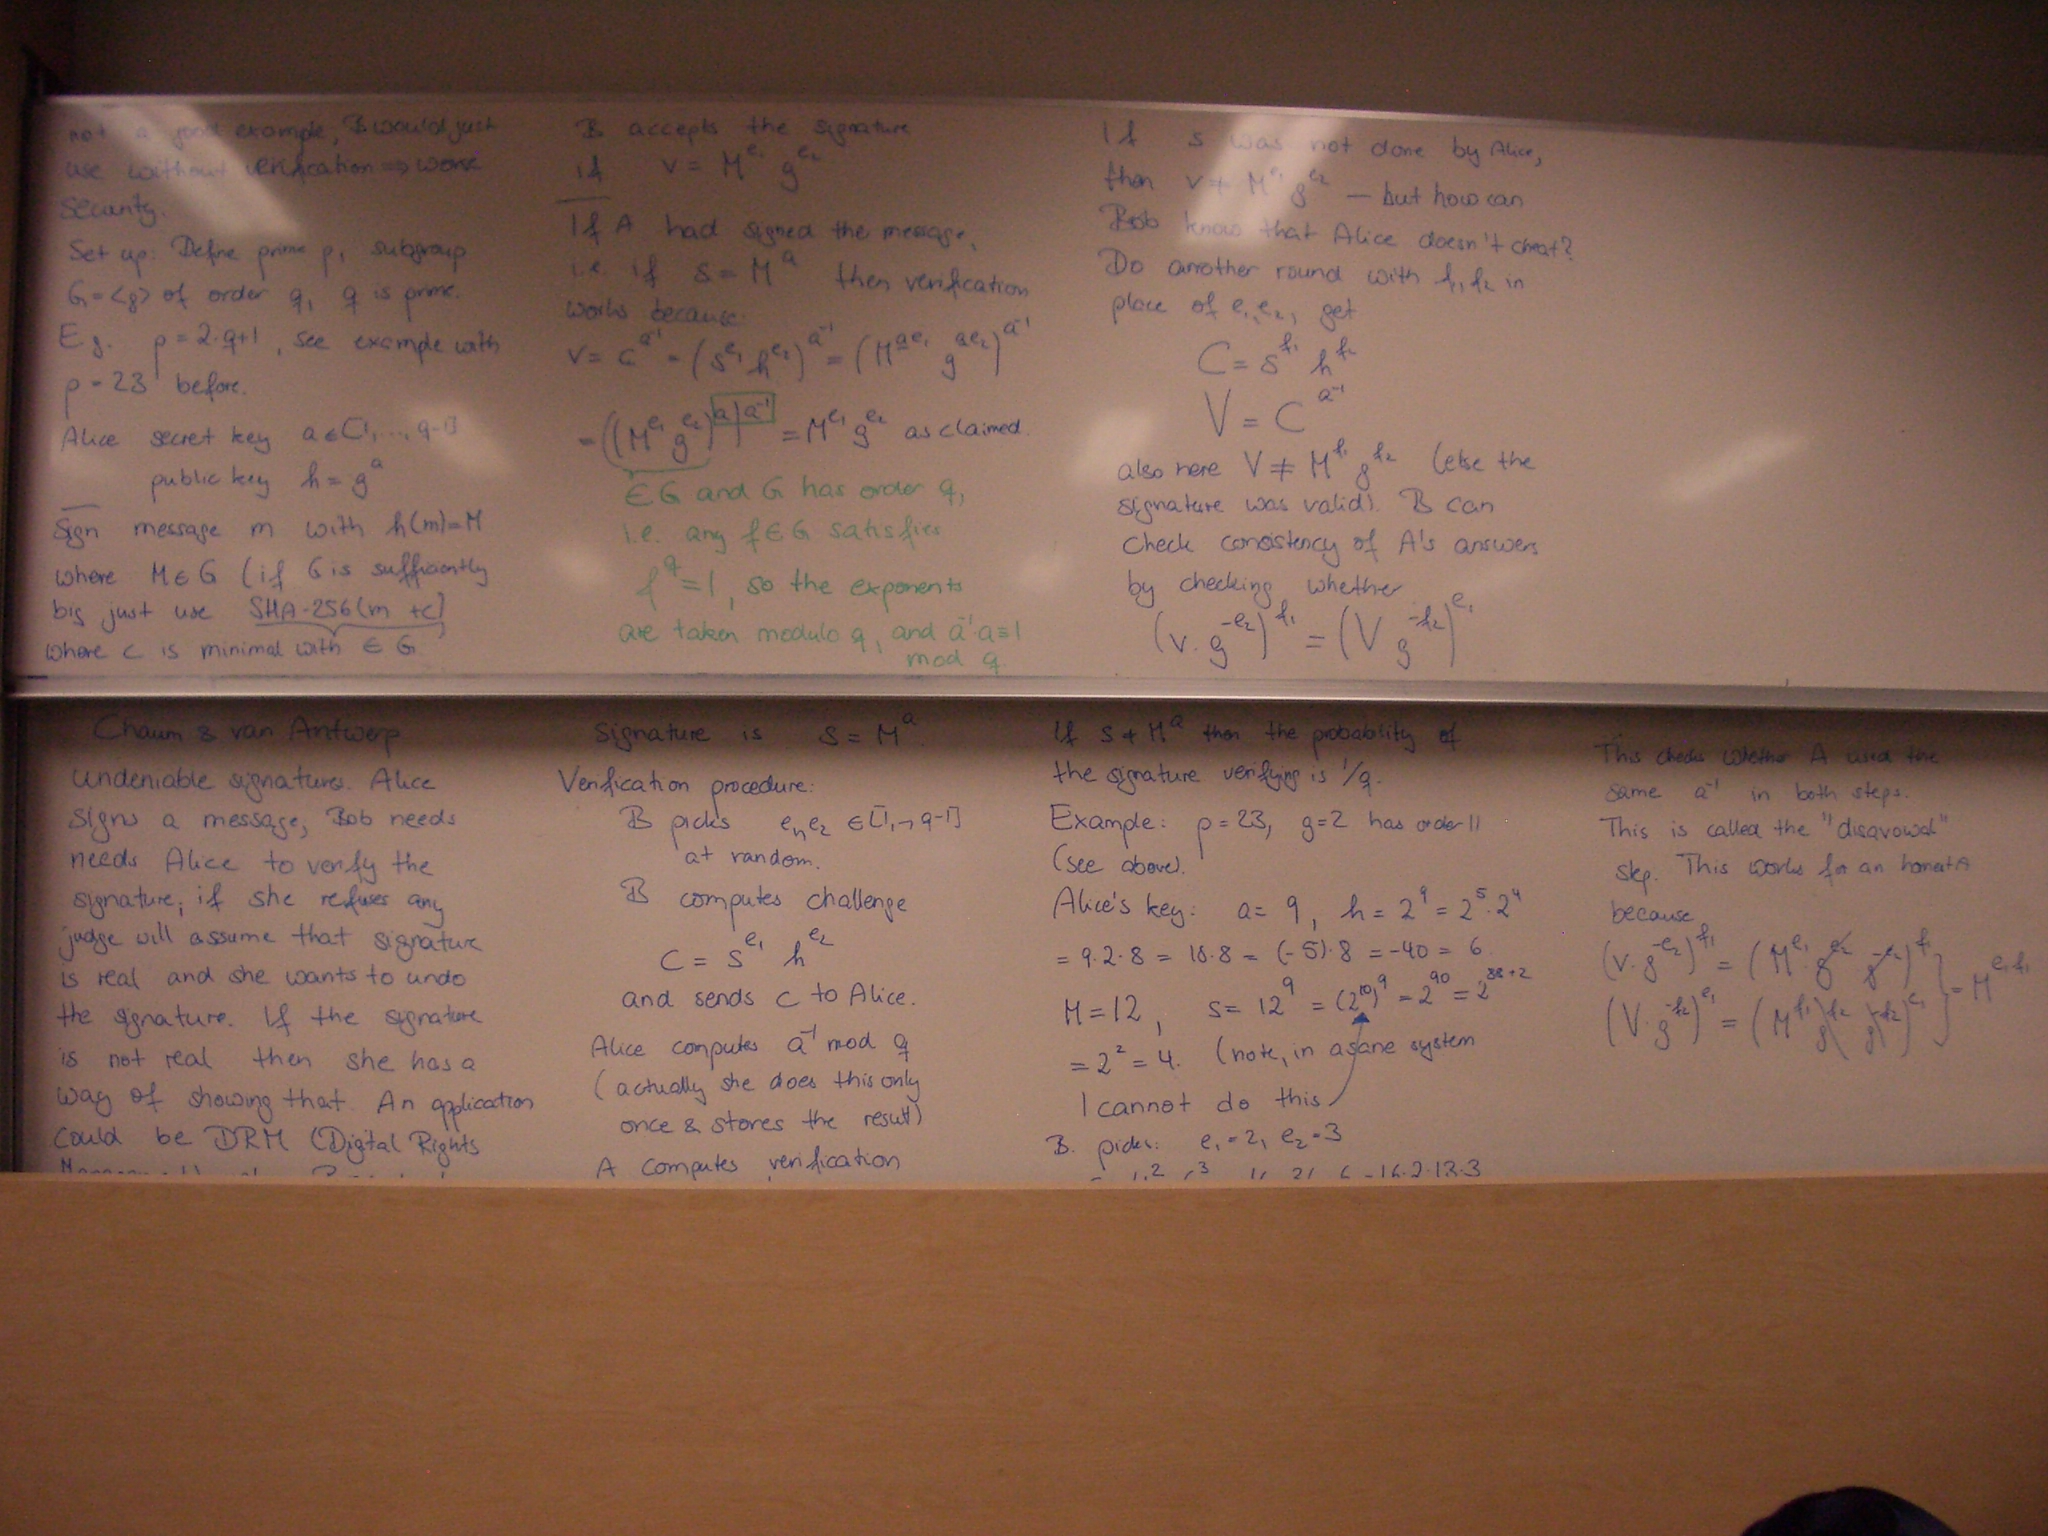 not a good example, B would just
use without verification ⇒ worse
security.
Set up: Define prime p, subgroup
G=<g> of order q, q is prime.
E.g. p=2·q+1, see example with
p=23 before.
Alice secret key a∈[1,...,q-1]
public key h=g^a
Sign message m with h(m)=M
where M∈G (if G is sufficiently
big just use SHA-256(m+c)
where c is minimal with ∈ G
B accepts the signature
if v=M^e₁ g^e₂
If A had signed the message,
i.e. if s=M^a then verification
works because:
v=c^a⁻¹=(s^e₁ h^e₂)^a⁻¹=(M^ae₁ g^ae₂)^a⁻¹
=((M^e₁ g^e₂)^a)^a⁻¹=M^e₁ g^e₂ as claimed.
∈G and G has order q,
i.e. any f∈G satisfies
f^q=1, so the exponents
are taken modulo q, and a⁻¹·a≡1
mod q
If s was not done by Alice,
then v≠M^e₁ g^e₂ — but how can
Bob know that Alice doesn't cheat?
Do another round with f₁,f₂ in
place of e₁,e₂, get
C=s^f₁ h^f₂
V=C^a⁻¹
also here V≠M^f₁ g^f₂ (else the
signature was valid). B can
check consistency of A's answers
by checking whether
(v·g^-e₂)^f₁=(V g^-f₂)^e₁
Chaum & van Antwerp
undeniable signatures. Alice
signs a message, Bob needs
needs Alice to verify the
signature; if she refuses any
judge will assume that signature
is real and she wants to undo
the signature. If the signature
is not real then she has a
way of showing that. An application
could be DRM (Digital Rights
Signature is s=M^a
Verification procedure:
B picks e₁,e₂ ∈[1,→q-1]
at random.
B computes challenge
c=s^e₁ h^e₂
and sends c to Alice.
Alice computes a⁻¹ mod q
(actually she does this only
once & stores the result)
A computes verification
If s≠M^a then the probability of
the signature verifying is 1/q.
Example: p=23, g=2 has order 11
(see above).
Alice's key: a=9, h=2^9=2^5·2^4
=9·2·8=18·8=(-5)·8=-40=6.
M=12, s=12^9=(2^10)^9=2^90=2^88+2
=2²=4. (note, in a sane system
I cannot do this
B. picks: e₁=2, e₂=3
This checks whether A used the
same a⁻¹ in both steps.
This is called the "disavowal"
step. This works for an honest A
because
(v·g^-e₂)^f₁=(M^e₁·g^e₂ g^-e₂)^f₁
(V·g^-f₂)^e₁=(M^f₁ g^f₂ g^-f₂)^e₁ } =M^e₁f₁